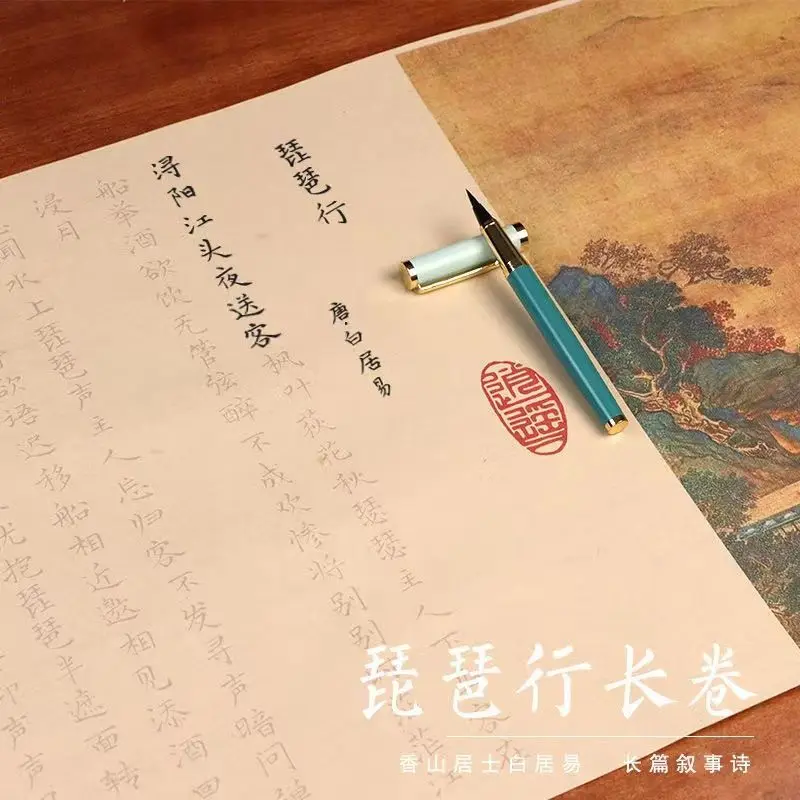 琵琶行
唐·白居易
浔阳江头夜送客枫叶荻花秋瑟瑟主人下客在
船举酒欲饮无管弦醉不成欢惨将别别茫江
浸月
闻水上琵琶声主人忘归客不发寻声暗问弹
欲语迟移船相近邀相见添酒回
犹抱琵琶半遮面转
抑声声
逍遥
琵琶行长卷
香山居士白居易 长篇叙事诗